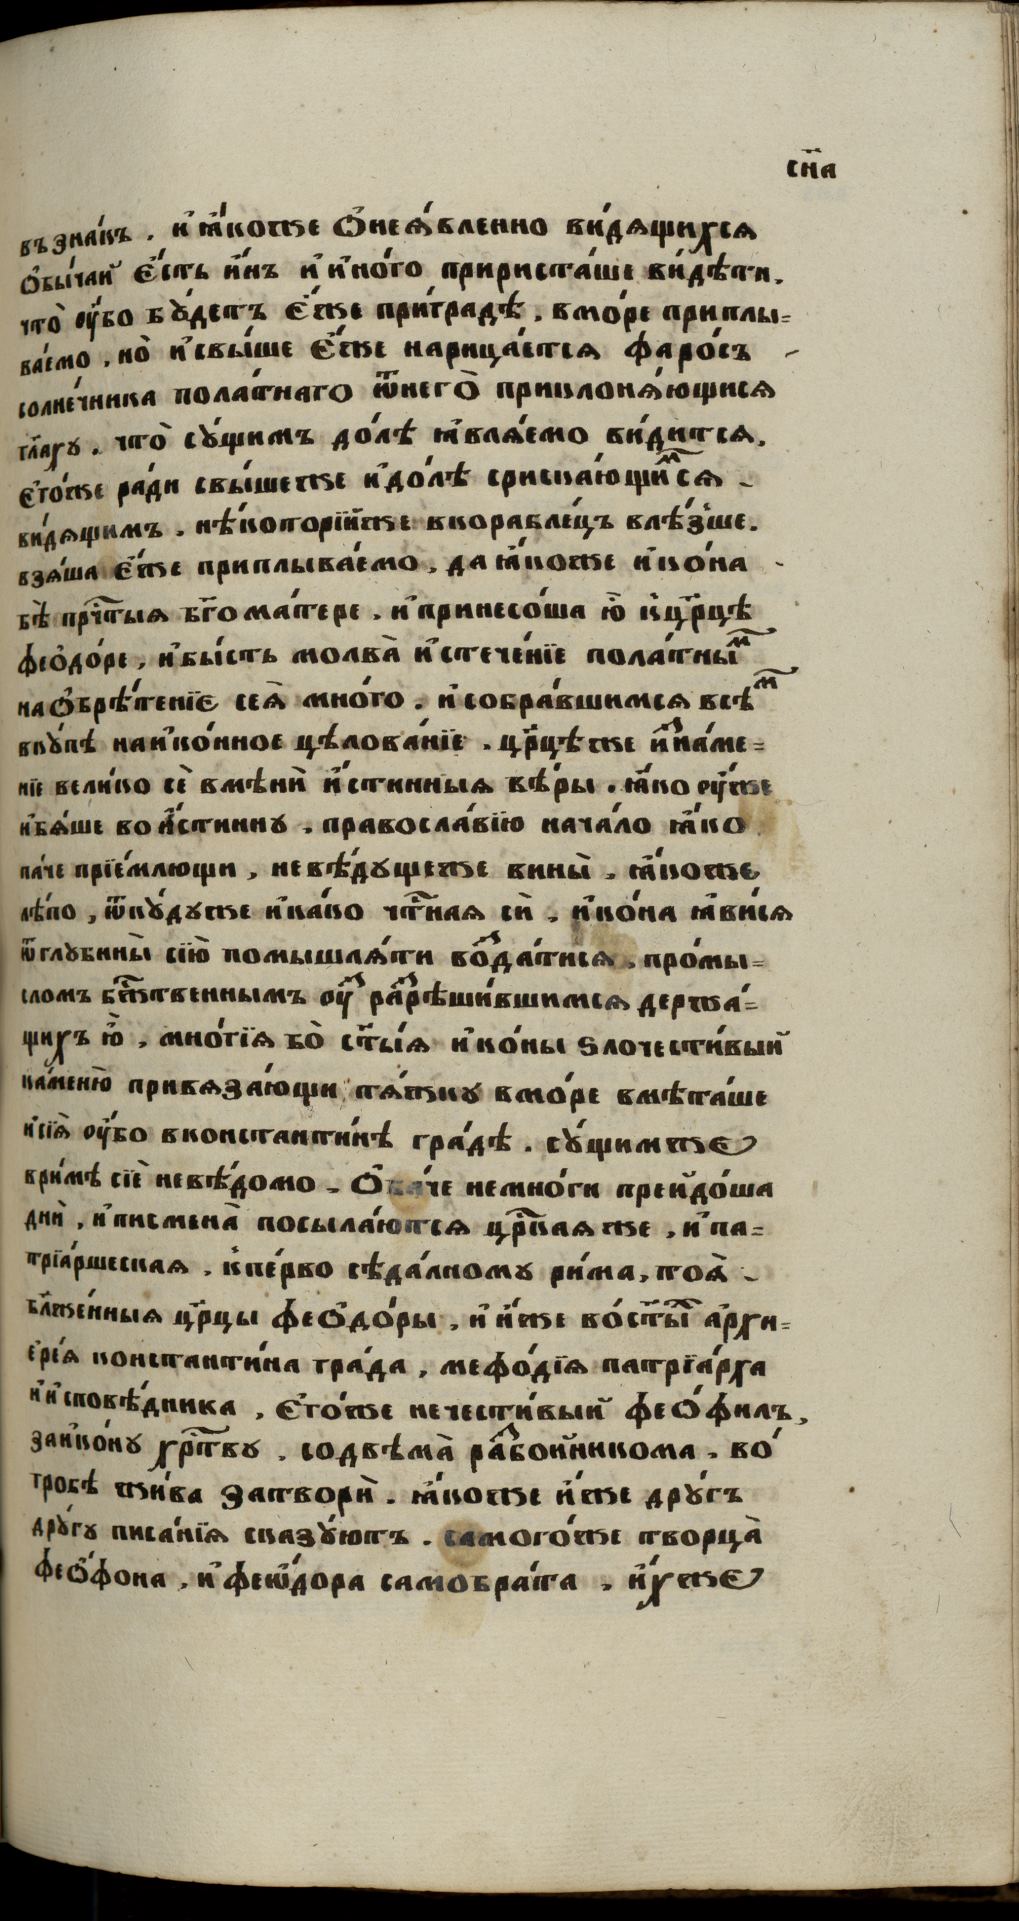 сн҃а
въ знакъ . и҆ ꙗ҆́коже ѻ҆ неꙗ҆́вленно ви́дѧщихсѧ
ѻ҆бы́чай є҆́сть и҆́нъ и҆ и҆но́го пририста́ше ви́дѣти .
что̀ ᲂу҆́бо бꙋ́детъ є҆́же при́градѣ , вмо́ре приплы=
ва́емо , но̀ и҆свы́ше є҆́же нарица́етсѧ фаро́съ
солне́чника пола́тнаго ѿнего̀ приклонѧ́ющисѧ
гла́хꙋ . что̀ сꙋ́щимъ до́лѣ ꙗ҆влѧ́емо ви́дитсѧ .
є҆го́же ра́ди свы́шеже и҆до́лѣ сриска́ющи́мсѧ
ви́дѧщимъ . нѣ́которїйже вкорабле́цъ влѣ́зше .
взѧ́ша є҆́же приплыва́емо , да ꙗ҆́коже и҆ко́на
бѣ̀ прⷭ҇тыѧ бг҃ома́тере . и҆принесо́ша ю҆̀ к̾цр҃цѣ
феѻ҆до́ре , и҆бы́сть молва̀ и҆стече́нїе пола́тныⷨ
на ѻ҆брѣ́тенїе сеѧ̀ мно́го . и҆собра́вшимсѧ всѣⷨ
вкꙋ́пѣ наи҆ко́нное цѣлова́нїе . цр҃цѣже и҆ⷥна́ме=
нїе вели́ко сѐ вмѣнѝ и҆́стинныѧ вѣ́ры . ꙗ҆́ко ᲂу҆́же
и҆бѧ́ше вои҆́стиннꙋ . правосла́вїю нача́ло ꙗ҆́ко
па́че прїе́млющи , невѣ́дꙋщеже вины̀ . ꙗ҆́коже
лѣ́по , ѿкꙋ́дꙋже и҆ка́ко чⷭ҇тнаѧ сѝ . и҆ко́на ꙗ҆ви́сѧ
ѿглꙋбины̀ сїю̀ помышлѧ́ти воⷥда́тисѧ , про́мы=
сломъ бж҃ⷭтвеннымъ ᲂу҆ⷤ раⷥрѣши́вшимсѧ держа́=
щихъ ю҆̀ , мно́гїѧ бо̀ ст҃ы́ѧ и҆ко́ны ѕлочести́вый
ка́менїю привѧза́ющи тѧ́жкꙋ вмо́ре вмѣта́ше
и҆сїѧ̀ ᲂу҆́бо вконстанти́нѣ гра́дѣ . сꙋ́щимже
ври́мѣ сїѐ невѣ́домо . ѻ҆ба́че немно́ги прейдо́ша
днѝ , и҆писмена̀ посыла́ютсѧ цр҃скаѧже , и҆па=
трїа́ршескаѧ , к̾пе́рво сѣда́лномꙋ ри́ма , тоѧ̀
бл҃же́нныѧ цр҃цы феѻ҆до́ры , и҆ и҆́же во́ст҃ы́ⷯ а҆рхи=
є҆ре́ѧ константи́на гра́да , мефо́дїѧ патрїа́рха
и҆ и҆сповѣ́дника , є҆го́же нечести́вый феѻ҆́филъ ,
заи҆ко́нꙋ хрⷭ҇твꙋ . содвѣма̀ раⷥбойникома , во
гробѣ жи́ва затворѝ . ꙗ҆́коже и҆́же дрꙋ́гъ
дрꙋ́гꙋ писа́нїѧ сказꙋ́ютъ . самого́же творца̀
феѻ҆́фона , и҆ феѡ҆́дора самобра́та , и҆́хже